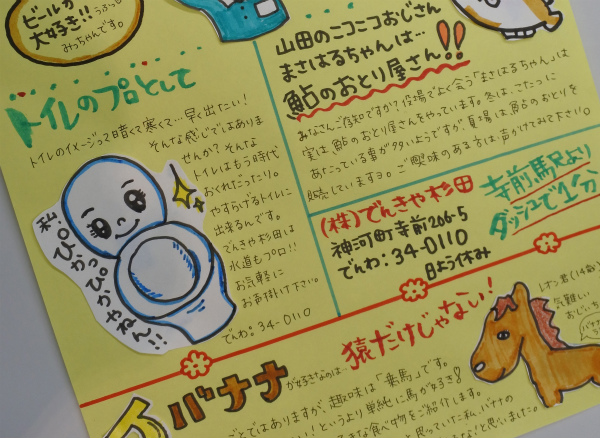 ビールが
大好き!!
みっちゃんです。
山田のニコニコおじさん
まさはるちゃんは…
鮎のおとり屋さん!!
みなさんご存知ですか?役場でよく会う「まさはるちゃん」は
実は、鮎のおとり屋さんをやっています。冬は、こたつに
あたっている事が多いようですが、夏場は、鮎のおとりを
販売していますヨ。ご興味のある方は、声かけてみて下さい。
トイレのプロとして
トイレのイメージって暗くて寒くて…早く出たい!
そんな感じではありま
せんか?そんな
トイレはもう時代
おくれだったり。
やすらげるトイレに
出来るんです。
でんきや杉田は
水道もプロ!!
お気軽に
お声掛け下さい。
でんわ:34-0110
私!
ぴっかぴかやねん!!
(株)でんきや杉田
神河町寺前206-5
でんわ:34-0110
日よう休み
寺前駅より
ダッシュで1分
猿だけじゃない!
バナナ
が好きなのは…
ごとではありますが、趣味は「乗馬」です。
い!というより単純に馬が好き
な食べ物をご紹介します。
と思っていた私。バナナの
レオン君(14歳)
気難しい